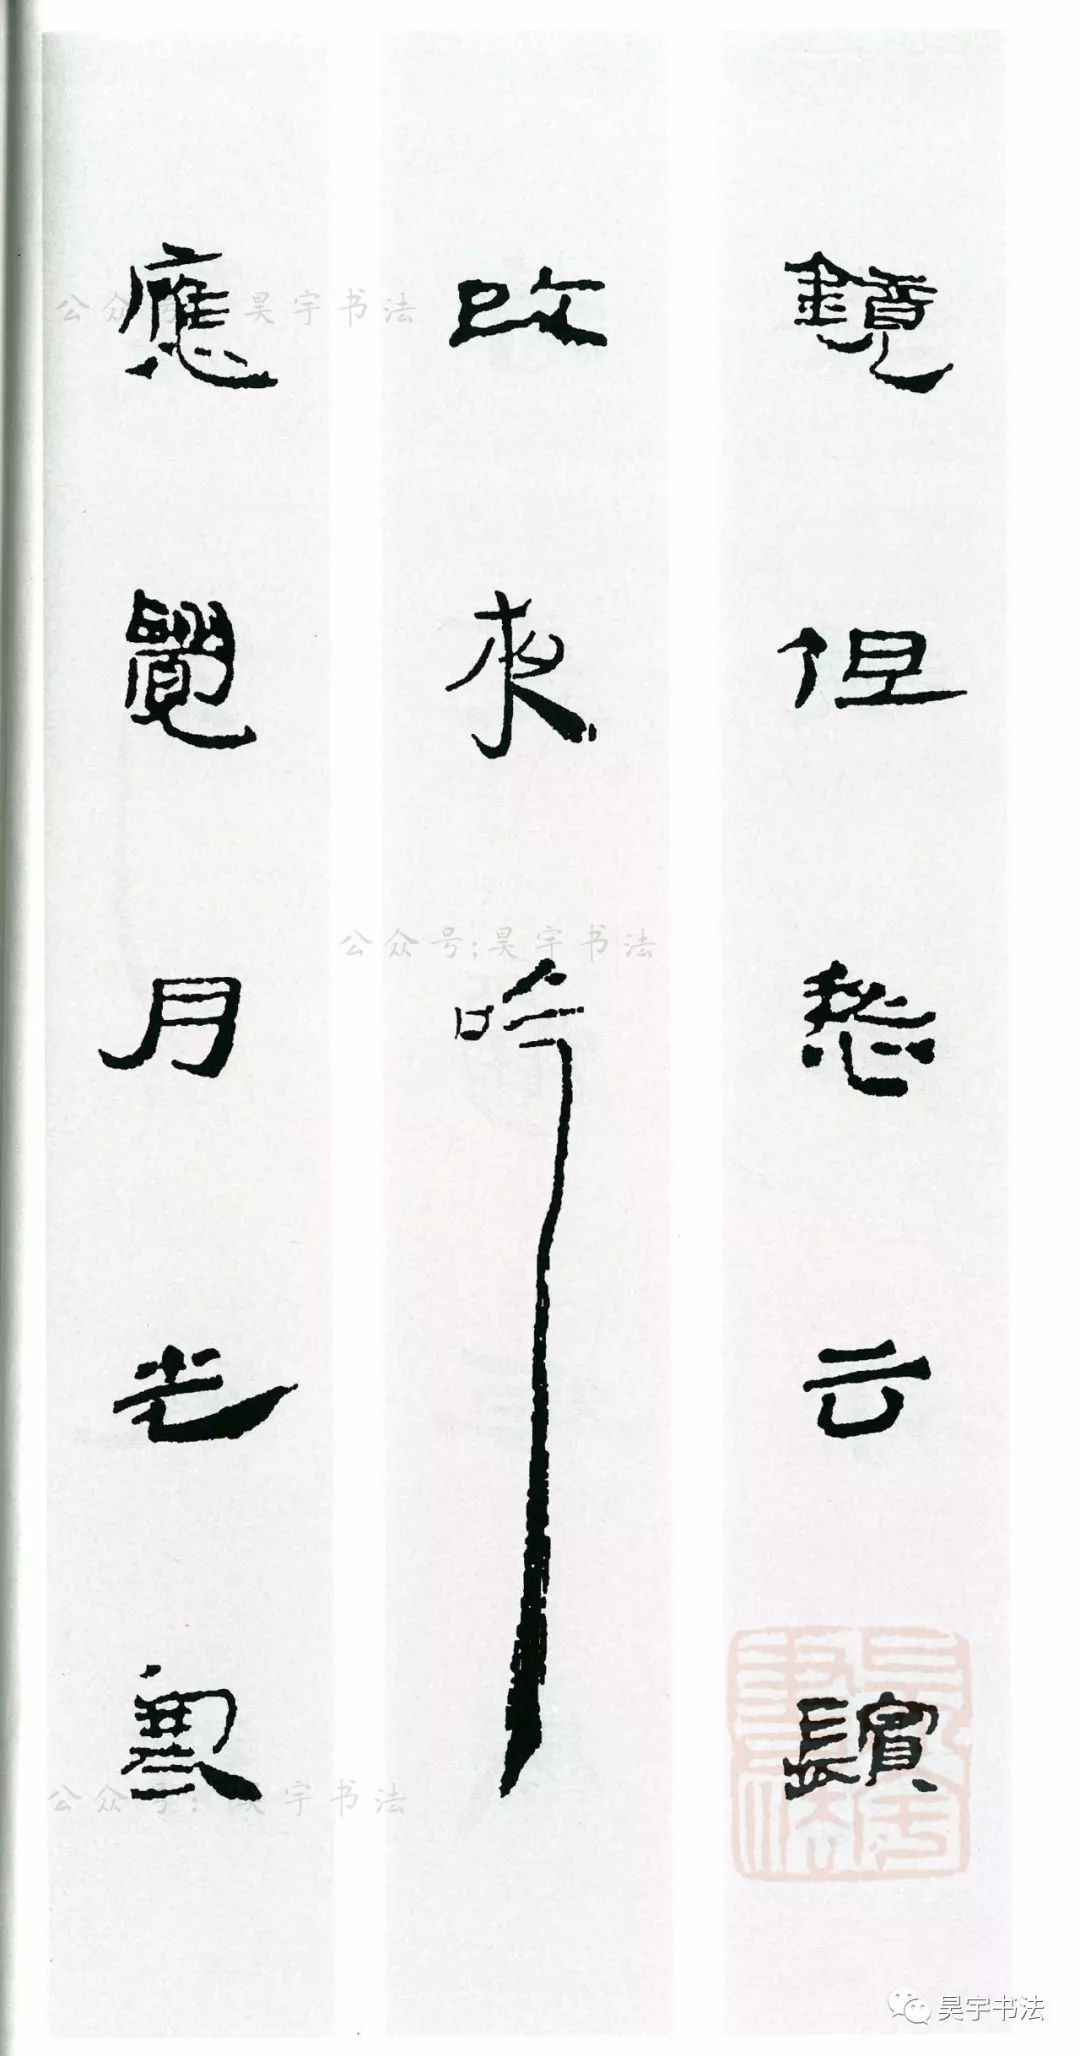 鏡但愁云鬢
改夜吟
應覺月光寒
公众号:昊宇书法
公众号:昊宇书法
公众号:昊宇书法
昊宇书法